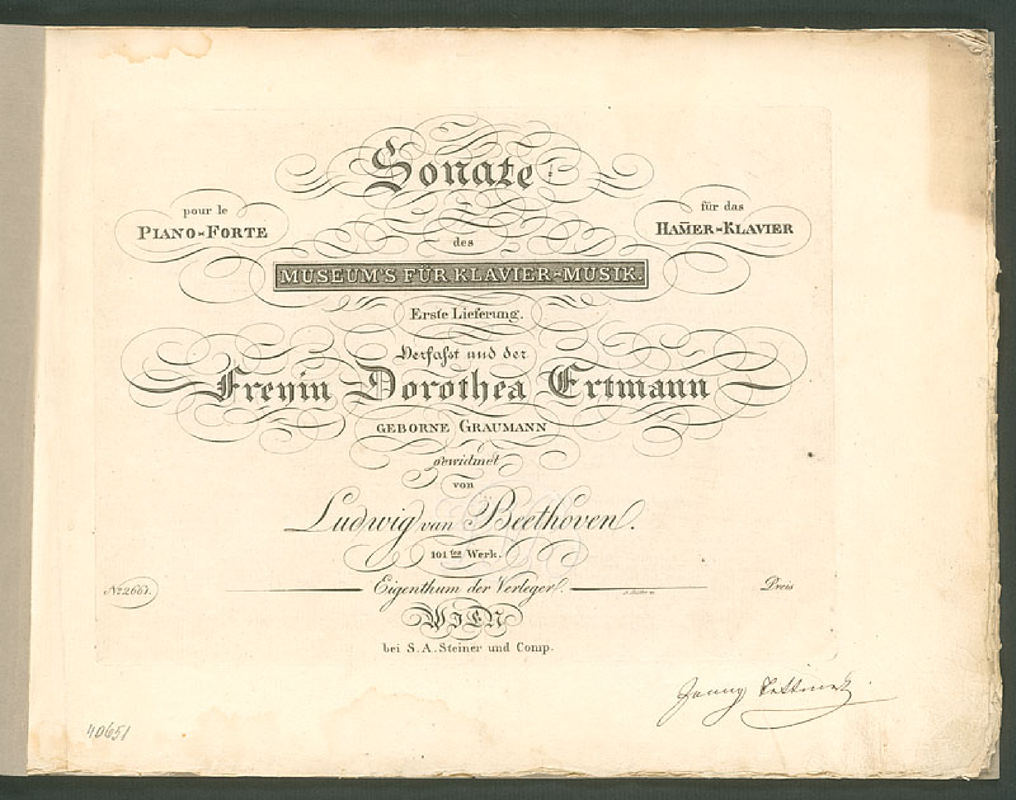 Sonate
pour le
PIANO-FORTE
für das
HAM̄ER-KLAVIER
des
MUSEUM'S FÜR KLAVIER-MUSIK.
Erste Lieferung.
Verfaßt und der
Freyin Dorothea Ertmann
GEBORNE GRAUMANN
gewidmet
von
Ludwig van Beethoven.
101tes Werk.
Eigenthum der Verleger.
Preis
WIEN
bei S.A. Steiner und Comp.
40651